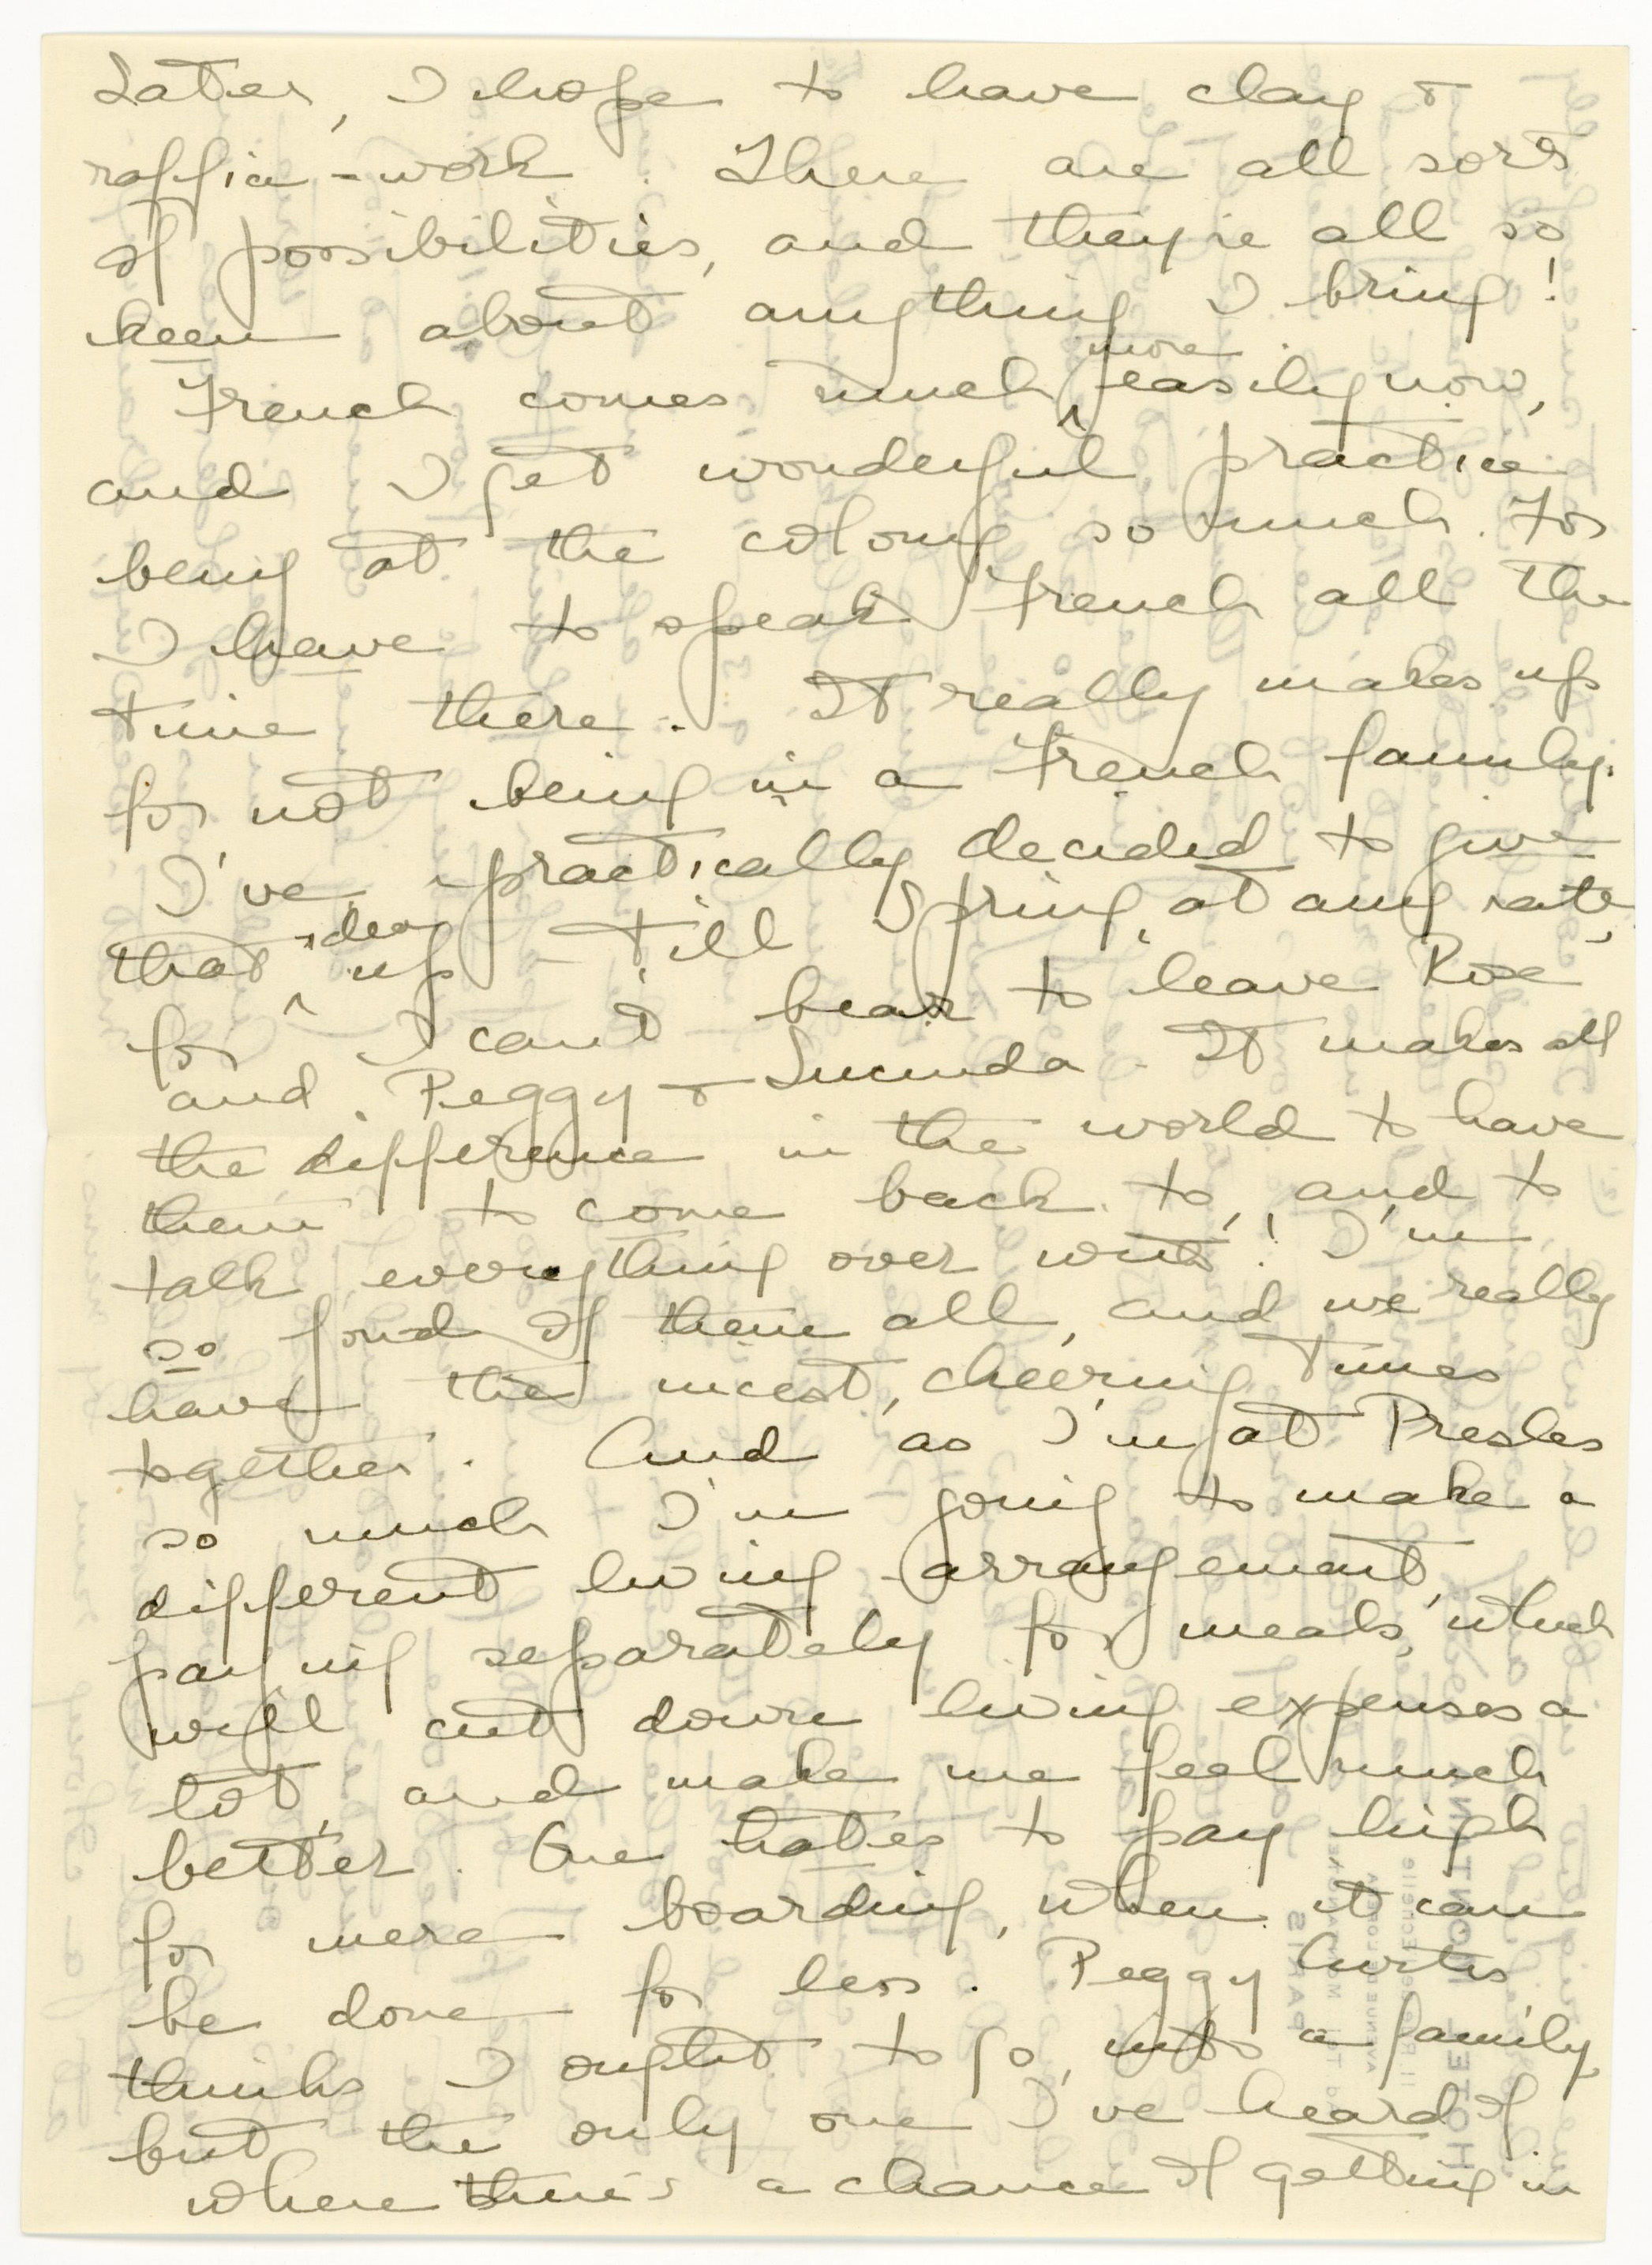 Later, I hope to have clay &
raffia-work. There are all sorts
of possibilities, and they're all so
keen about anything I bring!
French comes much more easily now,
and I get wonderful practice
being at the colony so much. For
I have to speak French all the
time there. It really makes up
for not being in a French family.
I've practically decided to give
that idea up - till Spring, at any rate,
for I can't bear to leave Rose
and Peggy & Lucinda. It makes all
the difference in the world to have
them to come back to, and to
talk everything over with! I'm
so fond of them all, and we really
have the nicest, cheering times
together. And as I'm at Presles
so much I'm going to make a
different living arrangement,
paying separately for meals, which
will cut down living expenses a
lot, and make me feel much
better. One hates to pay high
for mere boarding, when it can
be done for less. Peggy Curtis
thinks I ought to go into a family,
but the only one I've heard of
where there's a chance of getting in